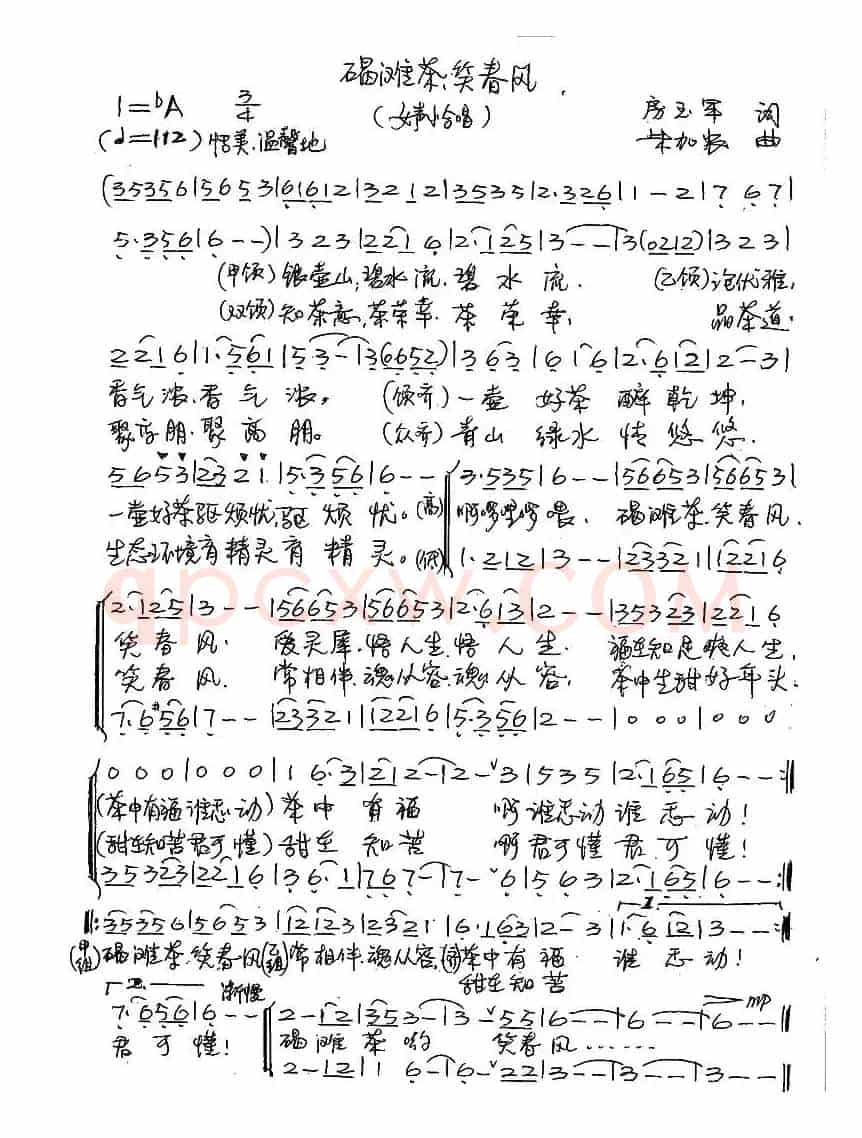 碣滩茶,笑春风
(女声小合唱)
1=bA 3/4
房玉军 词
(♩=112) 恬美、温馨地
朱加农 曲
(35356|56053|61612|3212|3535|2·326|1-2|767|
5·356|6--)|323|2216|2·125|3--|3(0212)|323|
(甲领)银壶山,碧水流,碧水流. (乙领)论优雅,
(双领)知茶意,茶荣幸.茶荣幸, 品茶道,
2216|1·561|53-|3(0652)|363|616|2·612|2-3|
香气浓,香气浓, (领齐)一壶好茶醉乾坤,
聚高朋,聚高朋。 (众齐)青山绿水情悠悠.
5653|2321|5·356|6--|3·535|6--|56653|56653|
一壶好茶驱烦忧,驱烦忧。(高)啊啰嘿啰喂, 碣滩茶,笑春风,
生态环境育精灵育精灵。(低)1·212|3--|23321|12216
2·125|3--|56653|56653|2·613|2--|35323|2216
笑春风. 爱灵犀,悟人生,悟人生. 福在知足暖人生,
笑春风. 常相伴,魂从容,魂从容, 茶中生甜好年头.
7·#656|7--|23321|12216|5·356|2--|000|000
000|000|16·3|212-|2-3|535|2·165|6--:||
(茶中有福谁忘动)茶中有福 啊谁忘动谁忘动!
(甜在知苦君可懂)甜在知苦 啊君可懂君可懂!
35323|2216|36·1|767-|7-6|563|2·165|6--:||
||:35356|56053|12123|2321|6·163|2-3|1·612|3--:||
(甲组)碣滩茶,笑春风(乙组)常相伴,魂从容,(齐)茶中有福 谁忘动!
甜在知苦
2. 渐慢
mp
7·656|6--|2-12|353-|3-55|6--|6--|6--||
君可懂! 碣滩茶哟 笑春风......
2-12|16-|6-22|3--|3--|3--||
qpcxw.com